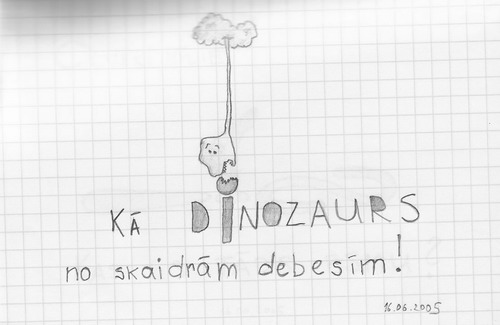 Kā DINOZAURS
no skaidrām debesīm!
16.06.2005